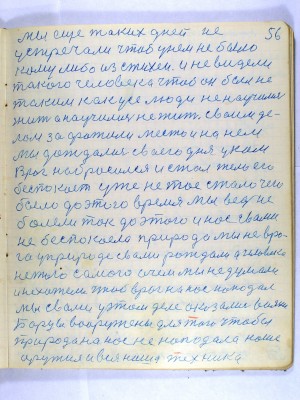 56
мы еще таких дней не
устречали чтоб у нем не было
кому либо из стихеи. и не видели
такого человека чтоб он был не
таким как усе люди не научился
жит а научился не жит. своим де-
лом за
место и на нем
мы дождалися своего дня у нас
Враг набросился и стал тело его
беспокоит уже не тое стало что
было до этого время мы вед не
болели так до этого и нас с вами
не беспокоела природа мы не вра-
га у природе с вами рождали а
него самого о чем мы не думали
и не хотели чтоб враг на нас нападал
мы с вами у этом деле оказалис
Борцы вооружены для того чтобы
природа на нас не нападала наше
оружия и вся наша техника